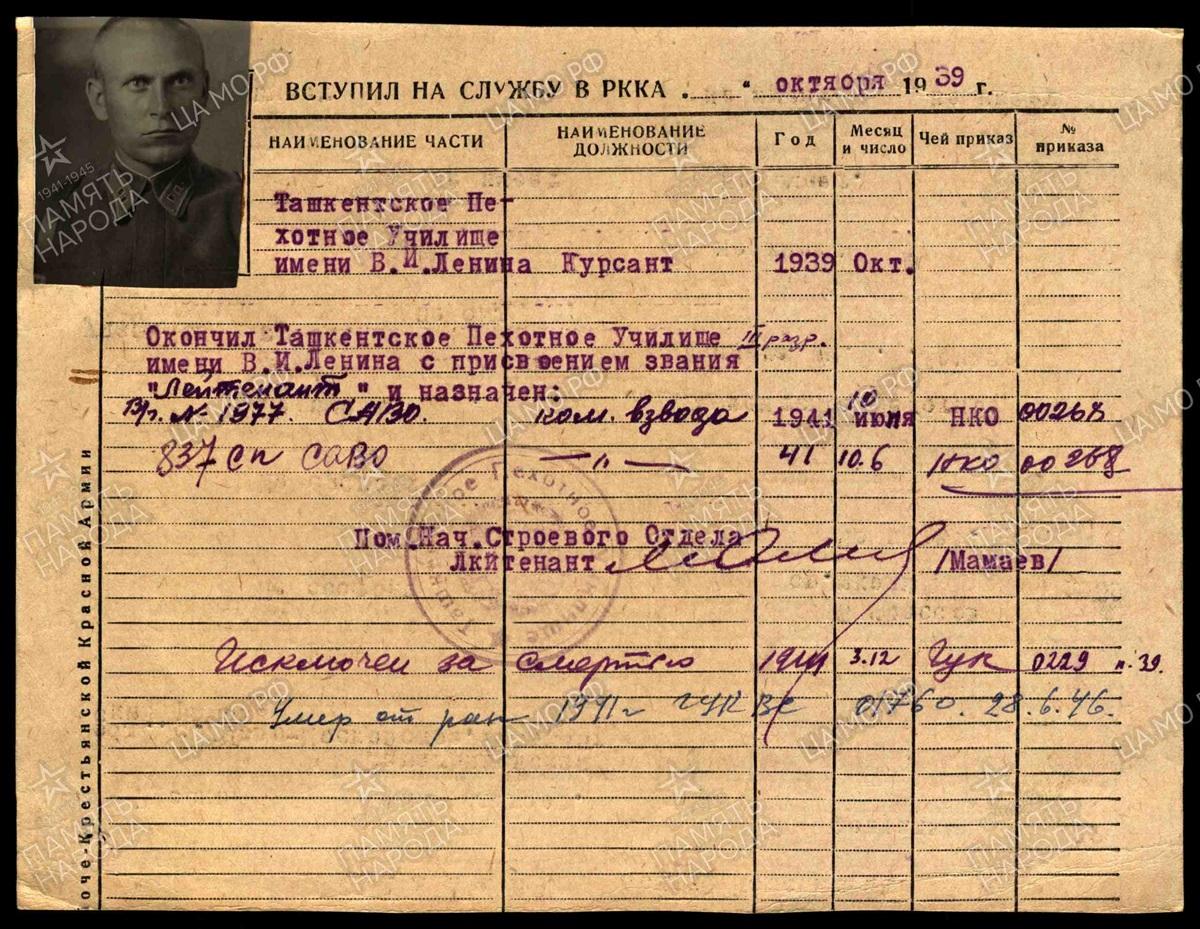 ВСТУПИЛ НА СЛУЖБУ В РККА „ “ октября 1939 г.
НАИМЕНОВАНИЕ ЧАСТИ НАИМЕНОВАНИЕ ДОЛЖНОСТИ Год Месяц и число Чей приказ № приказа
Ташкентское Пе-
хотное Училище
имени В.И.Ленина Курсант 1939 Окт.
Окончил Ташкентское Пехотное Училище III разр.
имени В.И.Ленина с присвоением звания
"Лейтенант" и назначен:
В/г. № 1977. САВО. ком. взвода 1941 10 июля НКО 00268
837 сп САВО —"— 41 10.6 НКО 00268
Пом.Нач.Строевого Отдела
Лкйтенант /Мамаев/
Исключен за смертью 1944 3.12 ГУК 0229 п. 39.
Умер от ран 1941г ГУК ВС 01760. 28.6.46.
оче-Крестьянской Красной Армии
1941-1945
ПАМЯТЬ НАРОДА
ЦА МО РФ